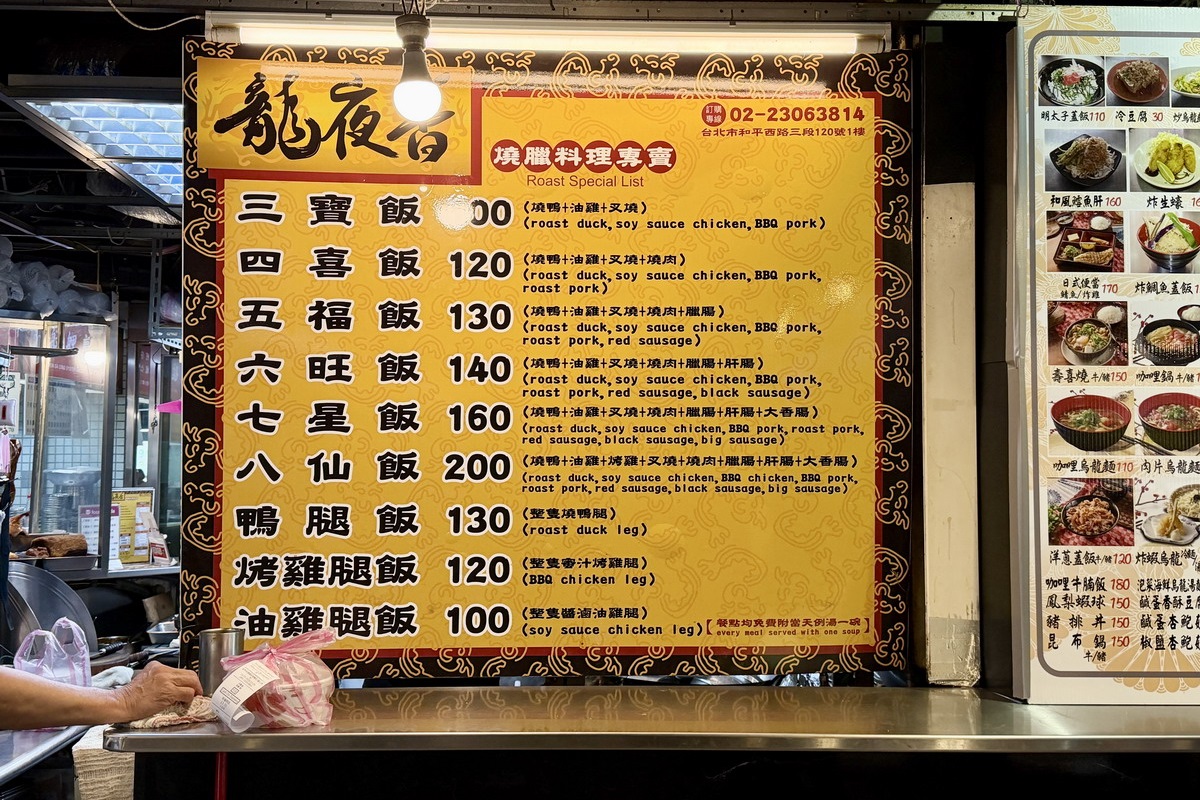 龍夜香
訂購專線 02-23063814
台北市和平西路三段120號1樓
燒臘料理專賣
Roast Special List
三寶飯 00 (燒鴨+油雞+叉燒)
(roast duck,soy sauce chicken,BBQ pork)
四喜飯 120 (燒鴨+油雞+叉燒+燒肉)
(roast duck,soy sauce chicken,BBQ pork,
roast pork)
五福飯 130 (燒鴨+油雞+叉燒+燒肉+臘腸)
(roast duck,soy sauce chicken,BBQ pork,
roast pork,red sausage)
六旺飯 140 (燒鴨+油雞+叉燒+燒肉+臘腸+肝腸)
(roast duck,soy sauce chicken,BBQ pork,
roast pork,red sausage,black sausage)
七星飯 160 (燒鴨+油雞+叉燒+燒肉+臘腸+肝腸+大香腸)
(roast duck,soy sauce chicken,BBQ pork,roast pork,
red sausage,black sausage,big sausage)
八仙飯 200 (燒鴨+油雞+烤雞+叉燒+燒肉+臘腸+肝腸+大香腸)
(roast duck,soy sauce chicken,BBQ chicken,BBQ pork,
roast pork,red sausage,black sausage,big sausage)
鴨腿飯 130 (整隻燒鴨腿)
(roast duck leg)
烤雞腿飯 120 (整隻蜜汁烤雞腿)
(BBQ chicken leg)
油雞腿飯 100 (整隻醬滷油雞腿)
(soy sauce chicken leg)
【餐點均免費附當天例湯一碗
every meal served with one soup】
明太子蓋飯110 冷豆腐 30 炒烏龍
和風鱈魚肝160 炸生蠔
日式便當 鯖魚/炸雞 170 炸鯛魚蓋飯
壽喜燒 牛/豬 150 咖哩鍋 牛/豬
咖哩烏龍麵110 肉片烏龍麵
洋蔥蓋飯 牛/豬 120 炸蝦烏龍
咖哩牛腩飯 180 泡菜海鮮烏龍湯
鳳梨蝦球 150 鹹蛋杏酥豆
豬排丼 150 鹹蛋杏鮑
昆布鍋 牛/豬 150 椒鹽杏鮑